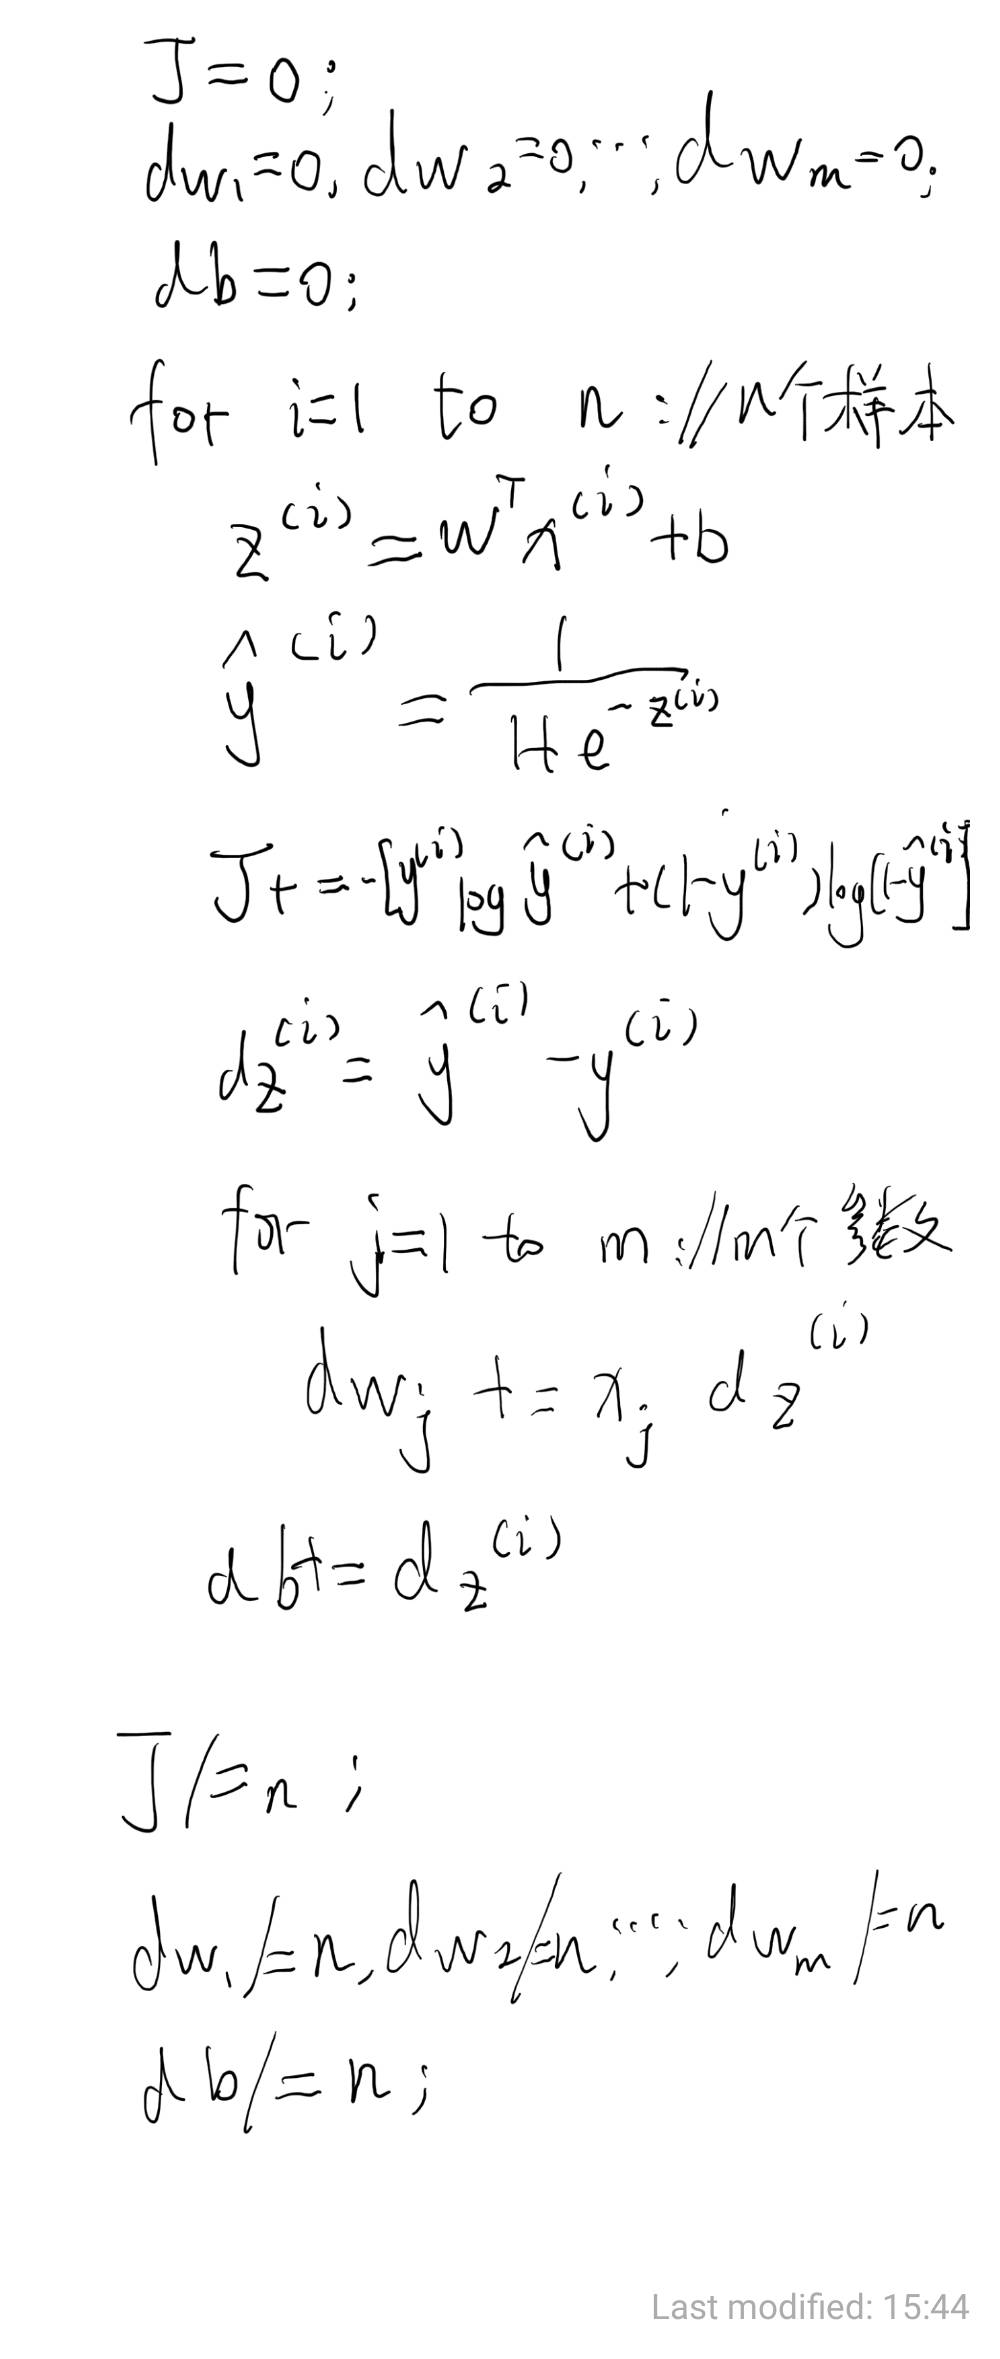 J=0;
dw₁=0, dw₂=0, ⋯, dwₘ=0;
db=0;
for i=1 to n ://n个样本
z⁽ⁱ⁾=wᵀx⁽ⁱ⁾+b
ŷ⁽ⁱ⁾ = 1/(1+e^(-z⁽ⁱ⁾))
J+=-[y⁽ⁱ⁾log ŷ⁽ⁱ⁾+(1-y⁽ⁱ⁾)log(1-ŷ⁽ⁱ⁾]
dz⁽ⁱ⁾= ŷ⁽ⁱ⁾ -y⁽ⁱ⁾
for j=1 to m ://m个参数
dwⱼ += xⱼ dz⁽ⁱ⁾
db+= dz⁽ⁱ⁾
J/=n ;
dw₁/=n, dw₂/=n, ⋯, dwₘ/=n
db/= n ;
Last modified: 15:44